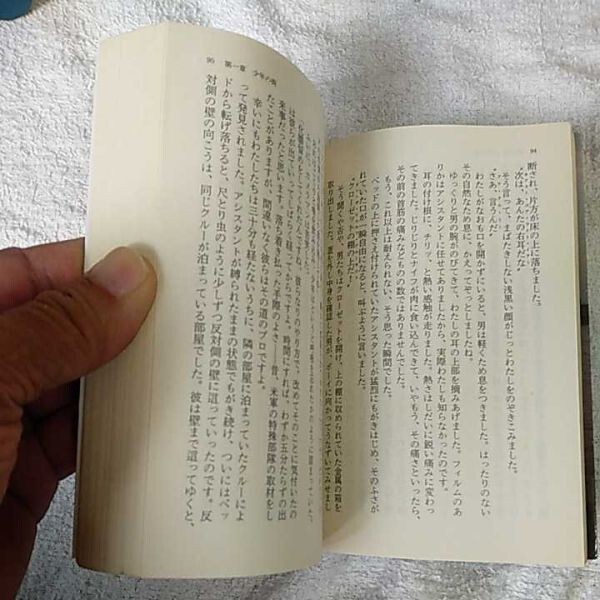 94
断され、片方が床の上に落ちました。
"次は、あんたの右耳だな"
そう言って、まばたきしない浅黒い顔がじっとわたしをのぞきこみました。
"さあ、言うんだ"
わたしがなおも口を開かずにいると、男は軽くため息をつきました。はったりのない
その自然なため息に、かえってぞっとしましたね。
ゆっくりと男の腕がのびてきて、わたしの耳の上部を摘みあげました。フィルムのあ
りかはアシスタントに任せてありましたから、実際わたしも知らなかったんです。
耳の付け根に、チリッ、と熱い感触が走りました。熱さはしだいに鋭い痛みに変わっ
てきました。じりじりとナイフが肉に食い込んできて、いやもう、その痛さといったら、
その前の首筋の痛みなどものの数ではありませんでした。
もう、これ以上は耐えられない、そう思った瞬間でした。
ベッドの上に押さえ付けられていたアシスタントが猛烈にもがきはじめ、そのふさが
れていた口が一瞬自由になると、叫ぶように言いました。
"クローゼットの上の棚の
そう聞くや否や、男たちはクローゼットを開け、上の棚に収められていた金属の箱を
取り出しました。蓋を外し中身を確認した男が、ボーイに向かってうなずいてみせまし
95 第一章 少年の街
は彼らが出ていってしばらく経ってからですよ。時間にすれば、わずか五分たらずの出
来事だったと思います。落ち着き払った手際のよさ――昔、米軍の特殊部隊の取材をし
たことがありますが、間違いなく彼らはその道のプロですよ。
幸いにもわたしたちは三十分も経たないうちに、隣の部屋に泊まっていたクルーによ
って発見されました。アシスタントが縛られたままの状態でもがき続け、ついにはベッ
ドから転げ落ちると、尺とり虫のように少しずつ反対側の壁に這っていったのです。反
対側の壁の向こうは、同じクルーが泊まっている部屋でした。彼は壁まで這ってゆくと、